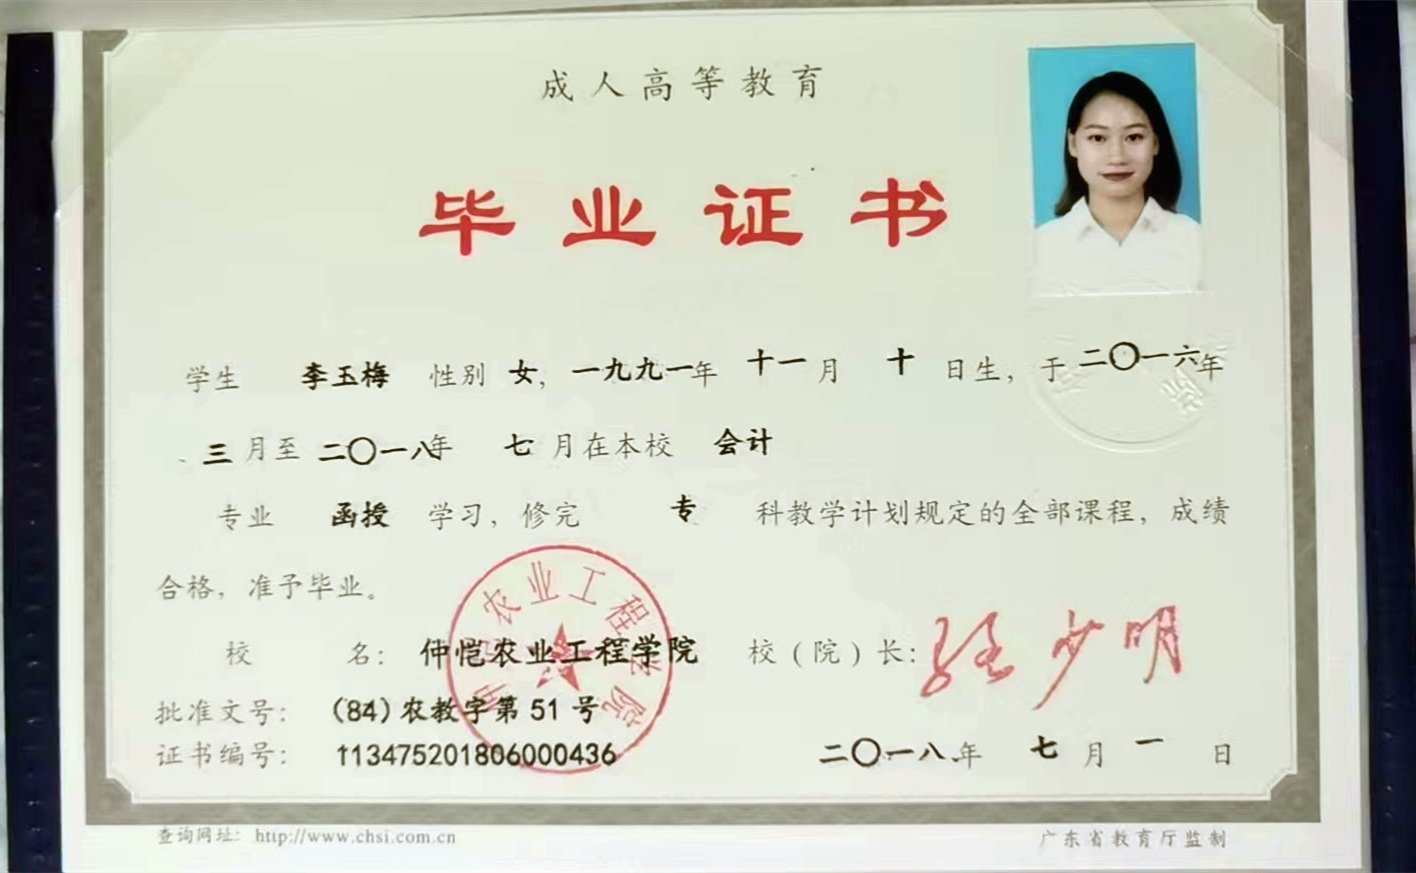 成人高等教育
毕业证书
学生 李玉梅 性别 女, 一九九一年 十一月 十 日生, 于 二〇一六年
三 月至 二〇一八年 七 月在本校 会计
专业 函授 学习, 修完 专 科教学计划规定的全部课程, 成绩
合格, 准予毕业。
校 名: 仲恺农业工程学院 校(院)长: 张少明
批准文号: (84)农教字第 51 号
证书编号: 113475201806000436 二〇一八年 七 月 一 日
查询网址: http://www.chsi.com.cn 广东省教育厅监制